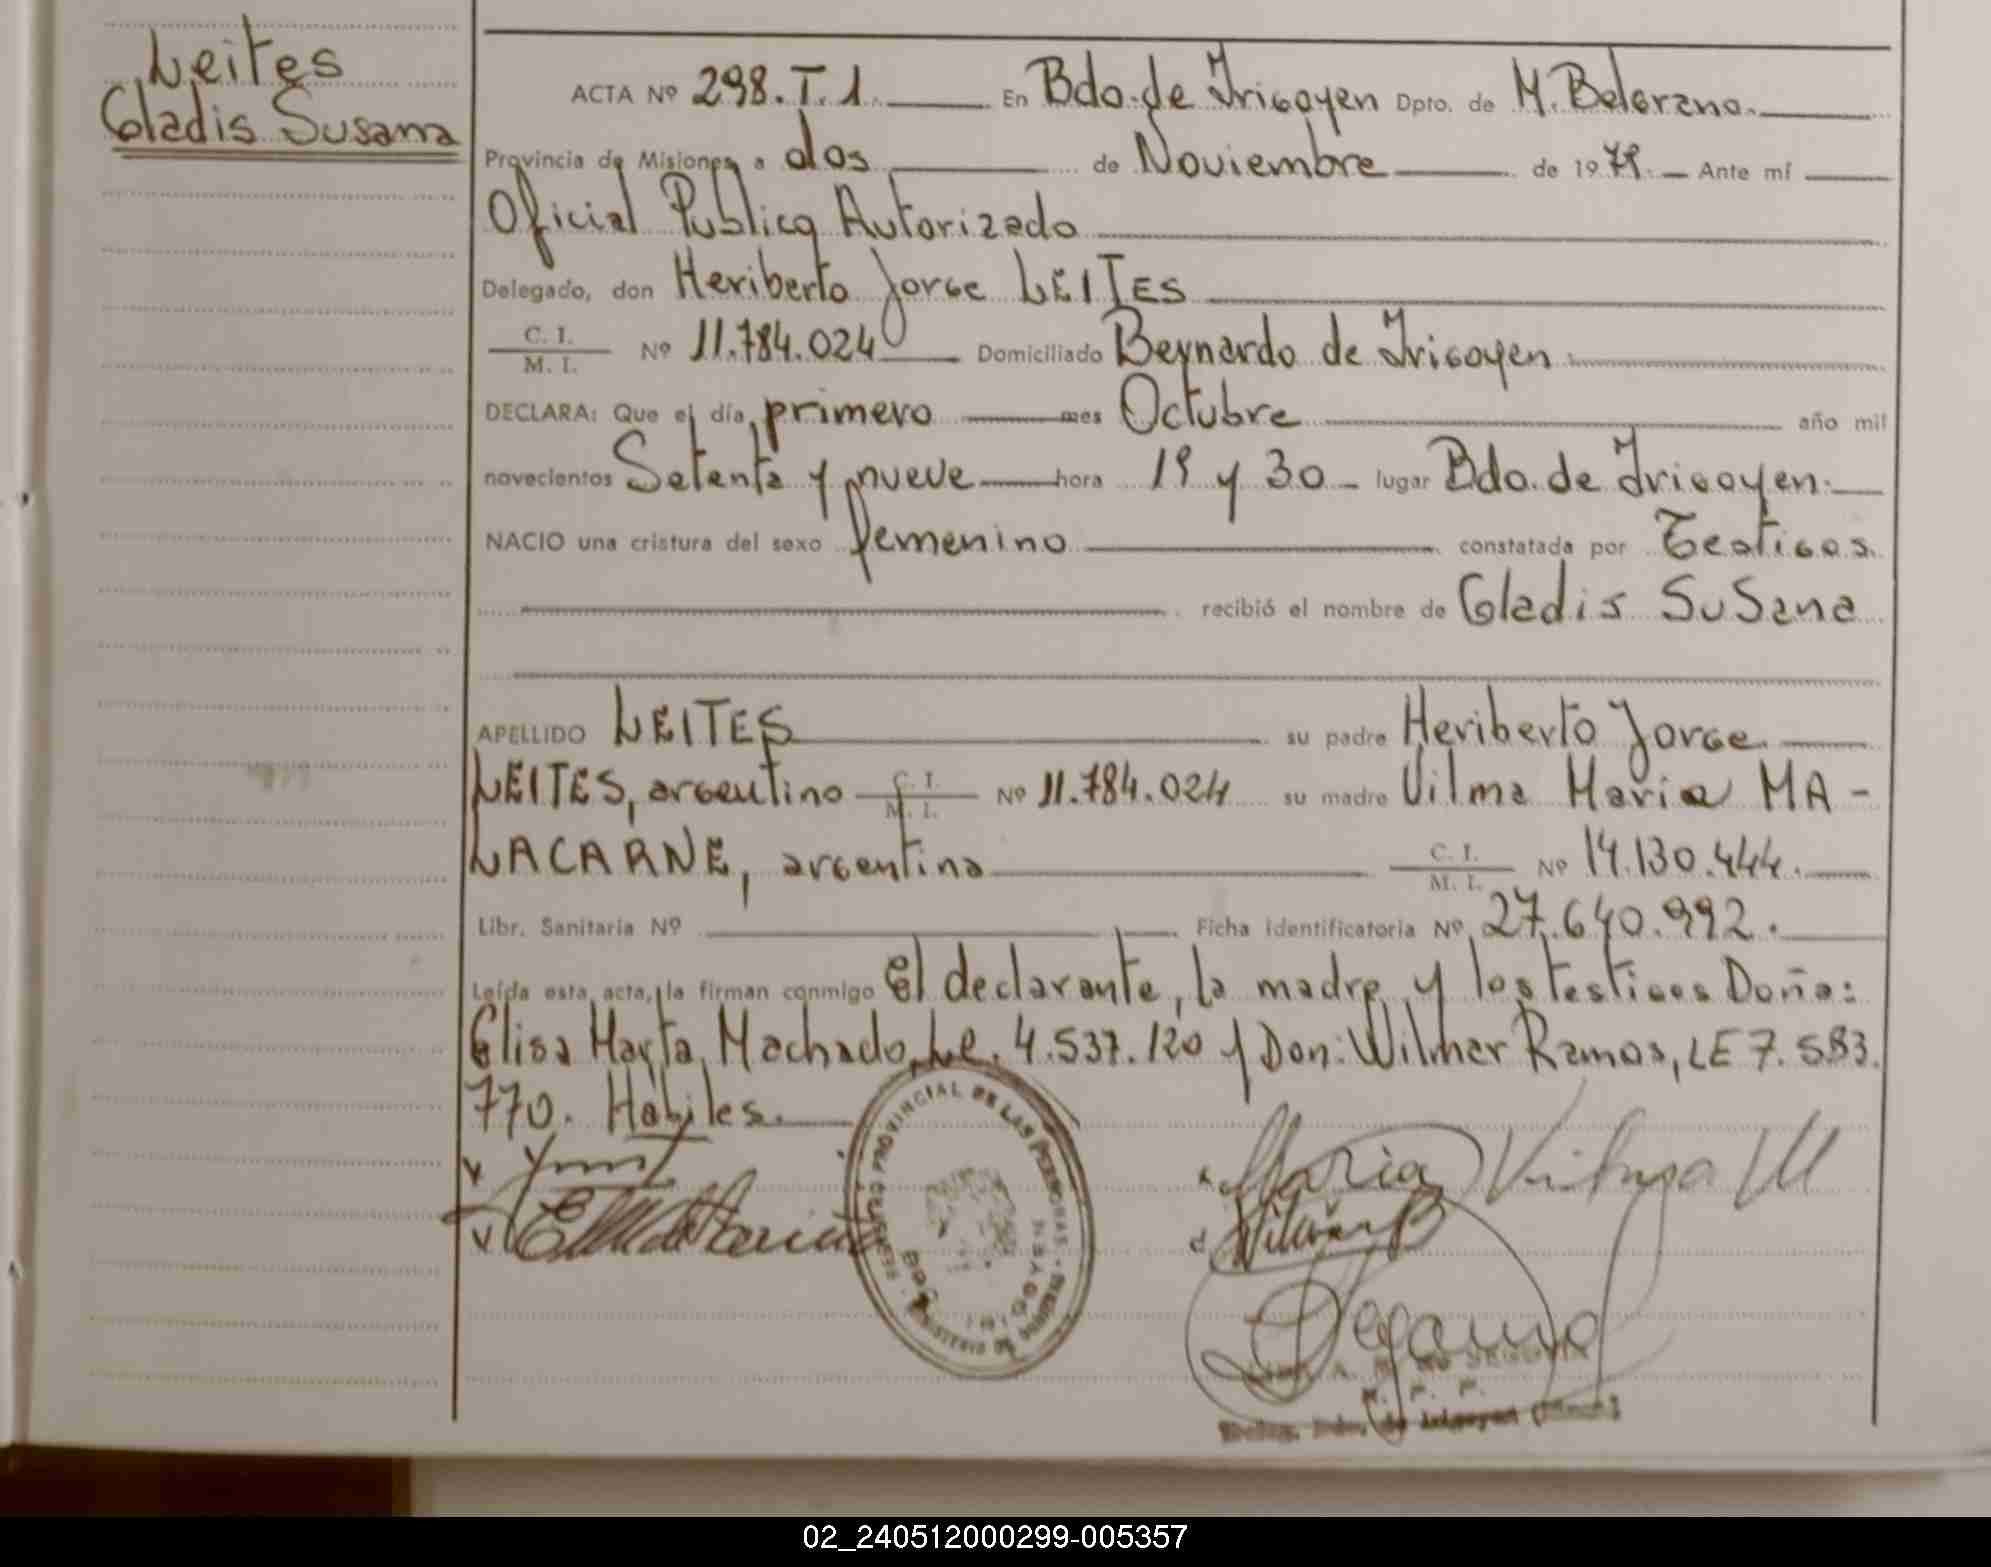 Leites
Gladis Susana
ACTA Nº 298.T.1. En Bdo. de Irigoyen Dpto. de M. Belgrano.
Provincia de Misiones a dos de Noviembre de 1979. Ante mí
Oficial Publico Autorizado
Delegado, don Heriberto Jorge LEITES
C. I.
M. I. Nº 11.784.024 Domiciliado Bernardo de Irigoyen
DECLARA: Que el día primero mes Octubre año mil
novecientos Setenta y nueve hora 19 y 30 lugar Bdo. de Irigoyen.
NACIO una cristura del sexo femenino constatada por Testigos.
recibió el nombre de Gladis Susana
APELLIDO LEITES su padre Heriberto Jorge
LEITES, argentino C. I. M. I. Nº 11.784.024 su madre Vilma Maria MA-
LACARNE, argentina C. I. M. I. Nº 14.130.444.
Libr. Sanitaria Nº Ficha identificatoria Nº 27.640.992.
Leída esta acta, la firman conmigo El declarante, la madre y los testigos Doña:
Elisa Marta Machado, Le. 4.537.120 y Don: Wilmer Ramos, LE 7.583.
770. Habiles.
REGISTRO PROVINCIAL DE LAS PERSONAS
MINISTERIO DE GOBIERNO
BDO. IRIGOYEN
Maria
R. P. P.
Deleg. Bdo. de Irigoyen
02_240512000299-005357